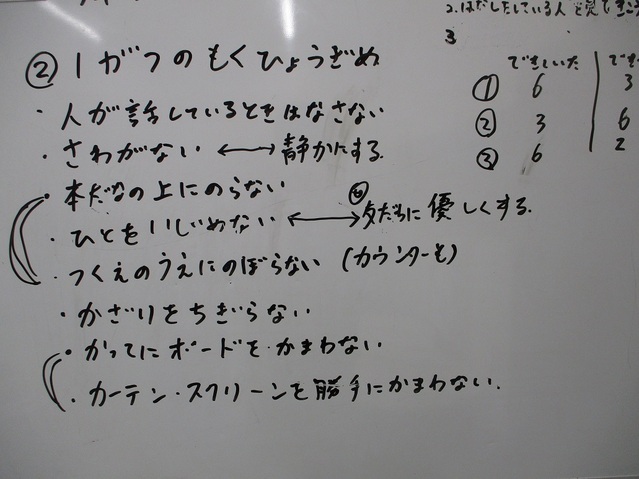 2.はなしたしている人
3
できていた
① 6 3
② 3 6
③ 6 2
② 1がつのもくひょうぎめ
・人が話しているときはなさない
・さわがない ←→ 静かにする.
・本だなの上にのらない
・ひとをいじめない ←→ 友だちに優しくする.
・つくえのうえにのぼらない (カウンターも)
・かざりをちぎらない
・かってにボードをかまわない
・カーテン・スクリーンを勝手にかまわない.